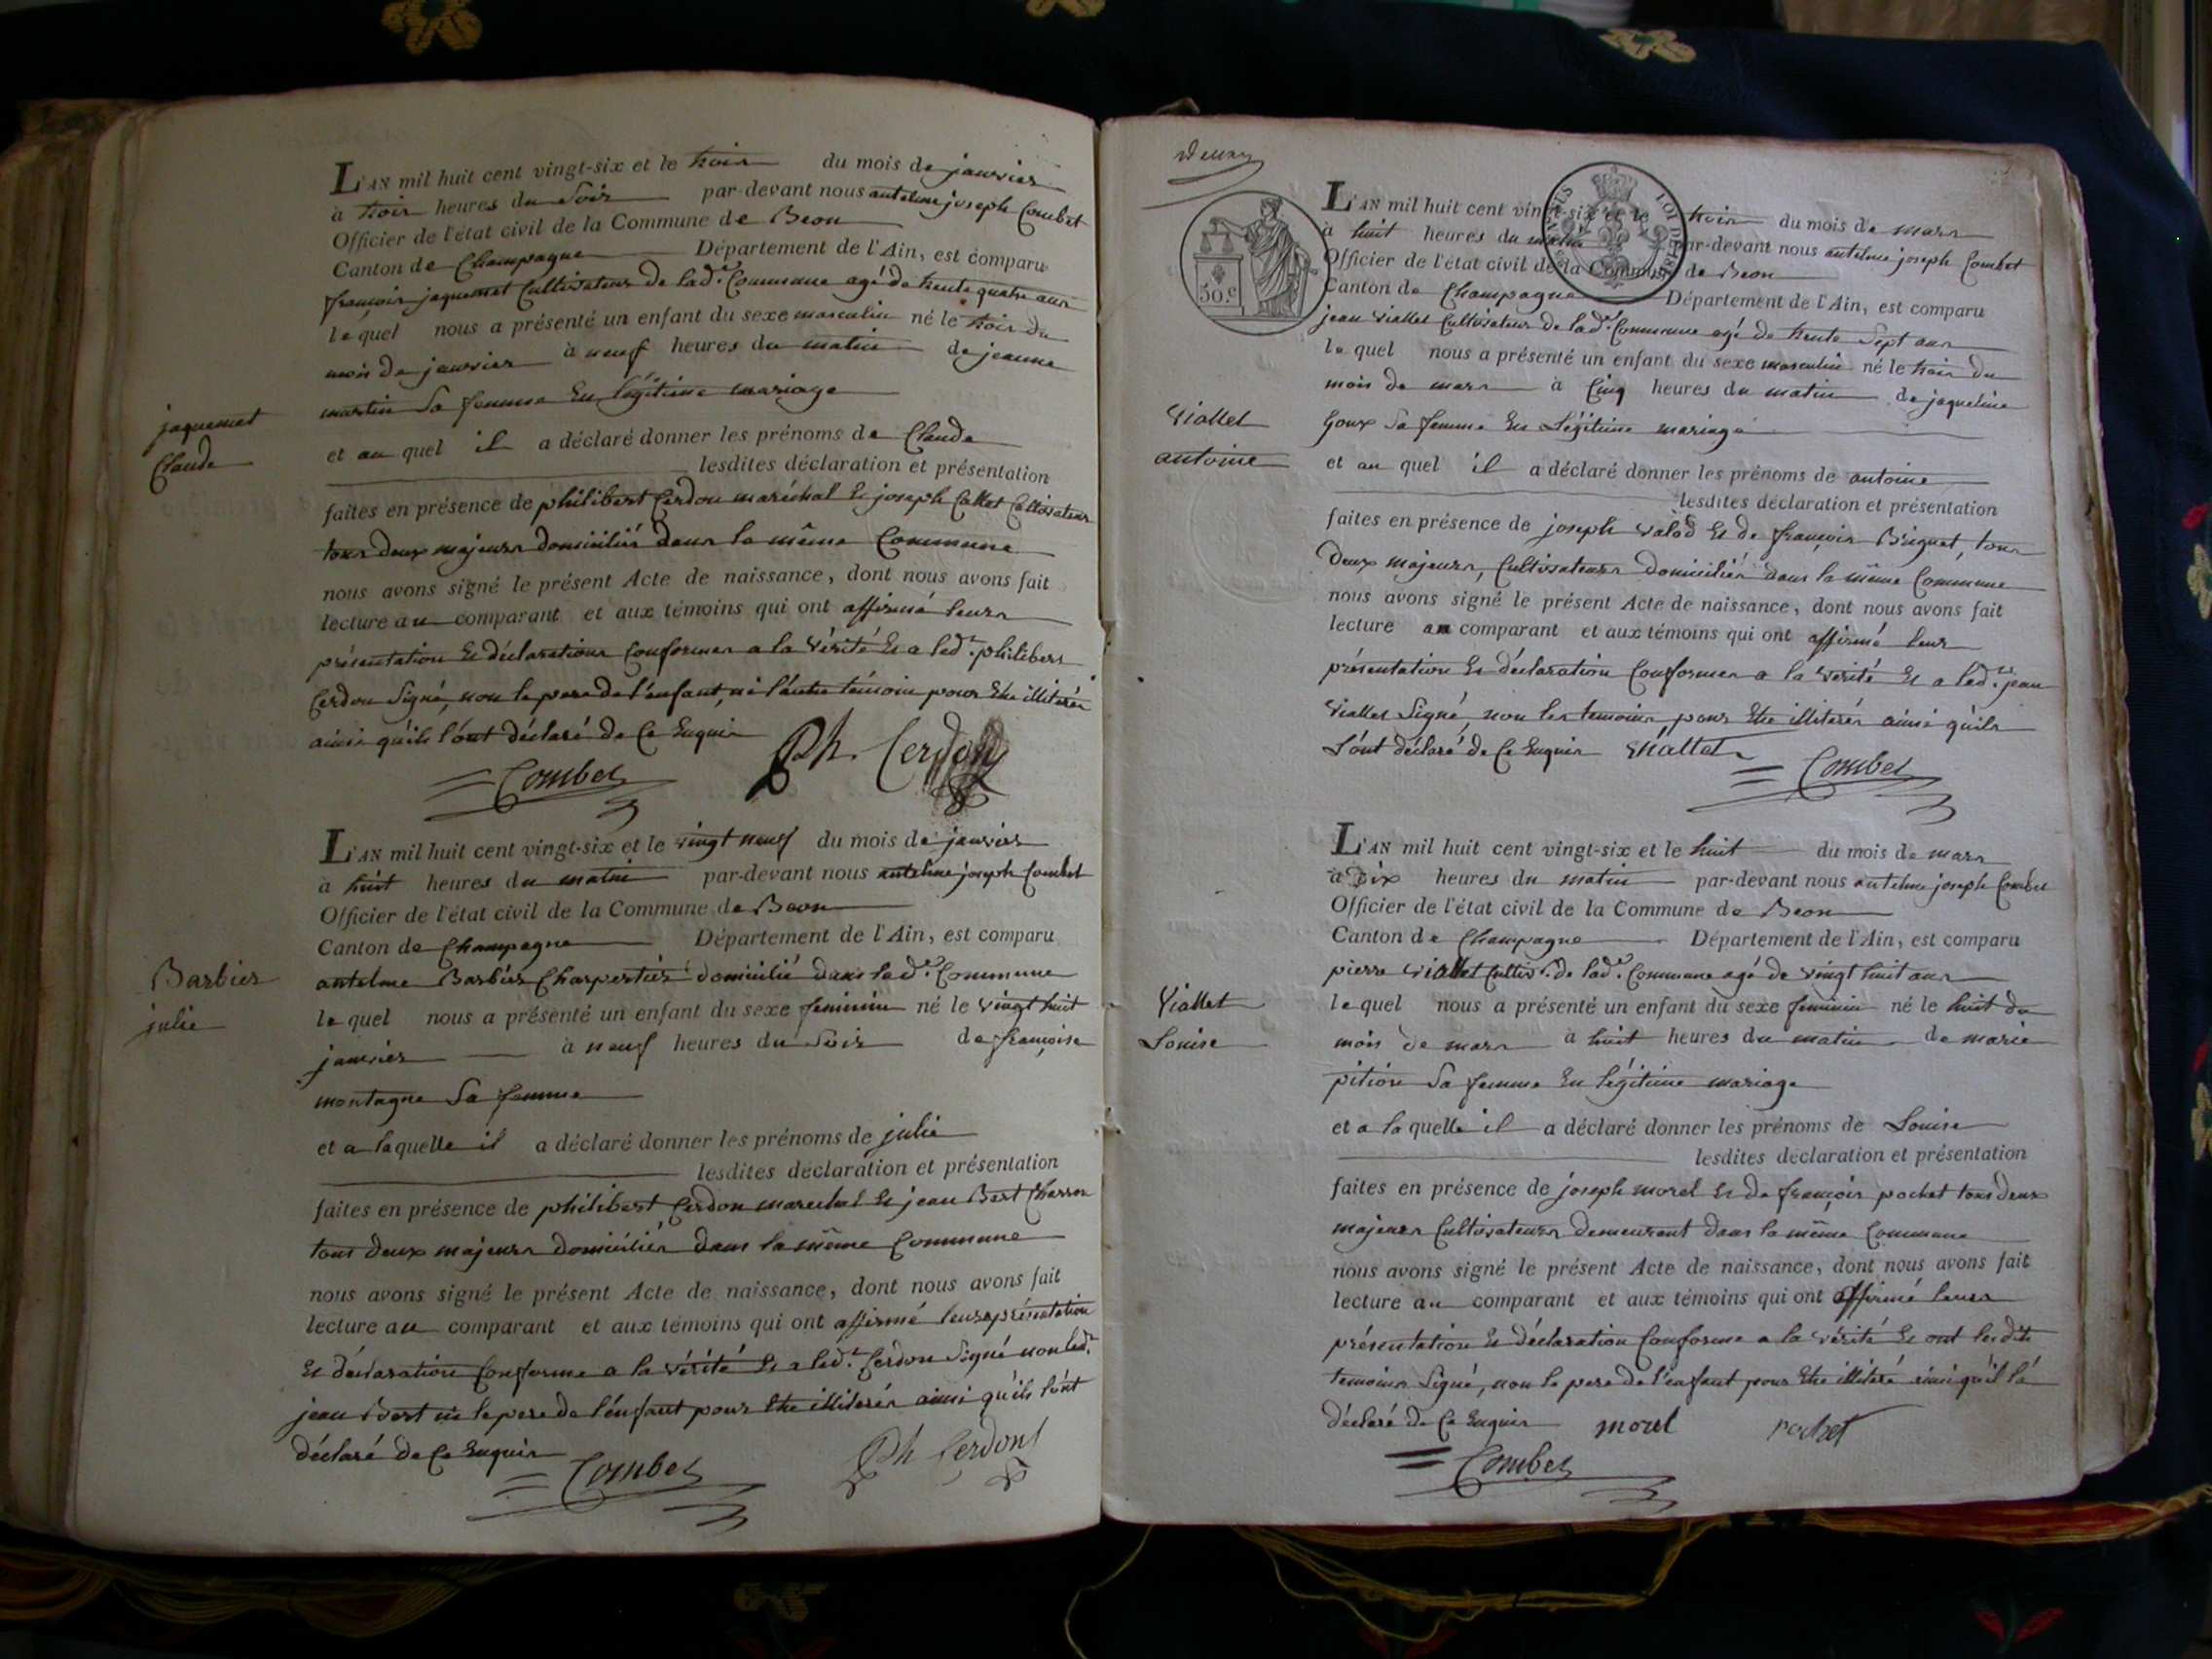 L'AN mil huit cent vingt-six et le trois du mois de janvier
à trois heures du soir par-devant nous antelme joseph Combet
Officier de l'état civil de la Commune de Beon
Canton de Champagne Département de l'Ain, est comparu
françois jaquemet Cultivateur de lad.e Commune agé de trente quatre ans
lequel nous a présenté un enfant du sexe masculin né le trois du
mois de janvier à neuf heures du matin de jeanne
martin Sa femme En légitime mariage
jaquemet
Claude
et au quel il a déclaré donner les prénoms de Claude
lesdites déclaration et présentation
faites en présence de philibert Cerdon maréchal Et joseph Callet Cultivateur
tous deux majeurs domiciliés dans la même Commune
nous avons signé le présent Acte de naissance, dont nous avons fait
lecture au comparant et aux témoins qui ont affirmé leurs
présentation Et déclaration Conformes a la vérité Et a led.t philibert
Cerdon Signé, non le pere de l'enfant, ni l'autre témoin pour Etre illiterés
ainsi qu'ils l'ont déclaré de Ce Enquis
Combet Ph. Cerdon
L'AN mil huit cent vingt-six et le vingt neuf du mois de janvier
à huit heures du matin par-devant nous antelme joseph Combet
Officier de l'état civil de la Commune de Beon
Canton de Champagne Département de l'Ain, est comparu
Barbier
julie
antelme Barbier Charpentier domicilié dans lad.e Commune
lequel nous a présenté un enfant du sexe feminin né le vingt huit
janvier à neuf heures du Soir de françoise
montagne Sa femme
et a laquelle il a déclaré donner les prénoms de julie
lesdites déclaration et présentation
faites en présence de philibert Cerdon marechal Et jean Bert Charron
tous deux majeurs domiciliés dans la même Commune
nous avons signé le présent Acte de naissance, dont nous avons fait
lecture au comparant et aux témoins qui ont affirmé leurs présentation
Et déclaration Conforme a la vérité Et a led.t Cerdon Signé non led.t
jean Bert ni le pere de l'enfant pour Etre illiterés ainsi qu'ils l'ont
déclaré de Ce Enquis
Combet Ph Cerdont
50.c
LOI DE 1816
L'AN mil huit cent vingt-six et le trois du mois de mars
à huit heures du matin par-devant nous antelme joseph Combet
Officier de l'état civil de la Commune de Beon
Canton de Champagne Département de l'Ain, est comparu
jean Viallet Cultivateur de lad.e Commune agé de trente Sept ans
lequel nous a présenté un enfant du sexe masculin né le trois du
mois de mars à Cinq heures du matin de jaqueline
Viallet
antoine
Goux Sa femme En Légitime mariage
et au quel il a déclaré donner les prénoms de antoine
lesdites déclaration et présentation
faites en présence de joseph valod Et de françois Briguet, tous
deux majeurs, Cultivateurs domiciliés dans la même Commune
nous avons signé le présent Acte de naissance, dont nous avons fait
lecture au comparant et aux témoins qui ont affirmé leur
présentation Et déclaration Conformes a la vérité Et a led.t jean
Viallet Signé, non les temoins pour Etre illiterés ainsi qu'ils
L'ont déclaré de Ce Enquis Viallet
Combet
L'AN mil huit cent vingt-six et le huit du mois de mars
à Dix heures du matin par-devant nous antelme joseph Combet
Officier de l'état civil de la Commune de Beon
Canton de Champagne Département de l'Ain, est comparu
pierre Viallet Cultiv.r de lad.e Commune agé de vingt huit ans
Viallet
Louise
lequel nous a présenté un enfant du sexe feminin né le huit du
mois de mars à huit heures du matin de marie
pition Sa femme En légitime mariage
et a laquelle il a déclaré donner les prénoms de Louise
lesdites déclaration et présentation
faites en présence de joseph morel Et de françois pochet tous deux
majeurs Cultivateurs demeurant dans la même Commune
nous avons signé le présent Acte de naissance, dont nous avons fait
lecture au comparant et aux témoins qui ont affirmé leurs
présentation Et déclaration Conforme a la vérité Et ont lesdits
temoins Signé, non le pere de l'enfant pour Etre illiteré ainsi qu'il l'a
déclaré de Ce Enquis morel pochet
Combet